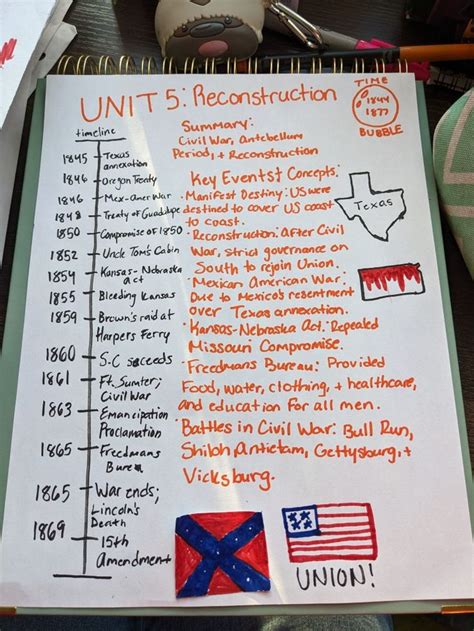 UNIT 5: Reconstruction
TIME
1844
1877
BUBBLE
timeline
1845 Texas
annexation
1846 Oregon Treaty
1846 Mex-Amer War
1848 Treaty of Guadalupe
1850 Compromise of 1850
1852 Uncle Tom's Cabin
1854 Kansas-Nebraska
act
1855 Bleeding Kansas
1859 Brown's raid at
Harpers Ferry
1860 S.C seceeds
1861 Ft. Sumter;
Civil War
1863 Emancipation
Proclamation
1865 Freedmans
Bureau
1865 War ends;
Lincoln's
Death
1869 15th
Amendment
Summary:
Civil War, Antebellum
Period, + Reconstruction
Key Events + Concepts:
• Manifest Destiny: US were
destined to cover US coast
to coast.
• Reconstruction: After Civil
War, strict governance on
South to rejoin Union.
• Mexican American War:
Due to Mexico's resentment
over Texas annexation.
• Kansas-Nebraska Act: Repealed
Missouri Compromise.
• Freedmans Bureau: Provided
Food, water, clothing, + healthcare,
and education for all men.
• Battles in Civil War: Bull Run,
Shiloh Antietam, Gettysburg, +
Vicksburg.
Texas
UNION!